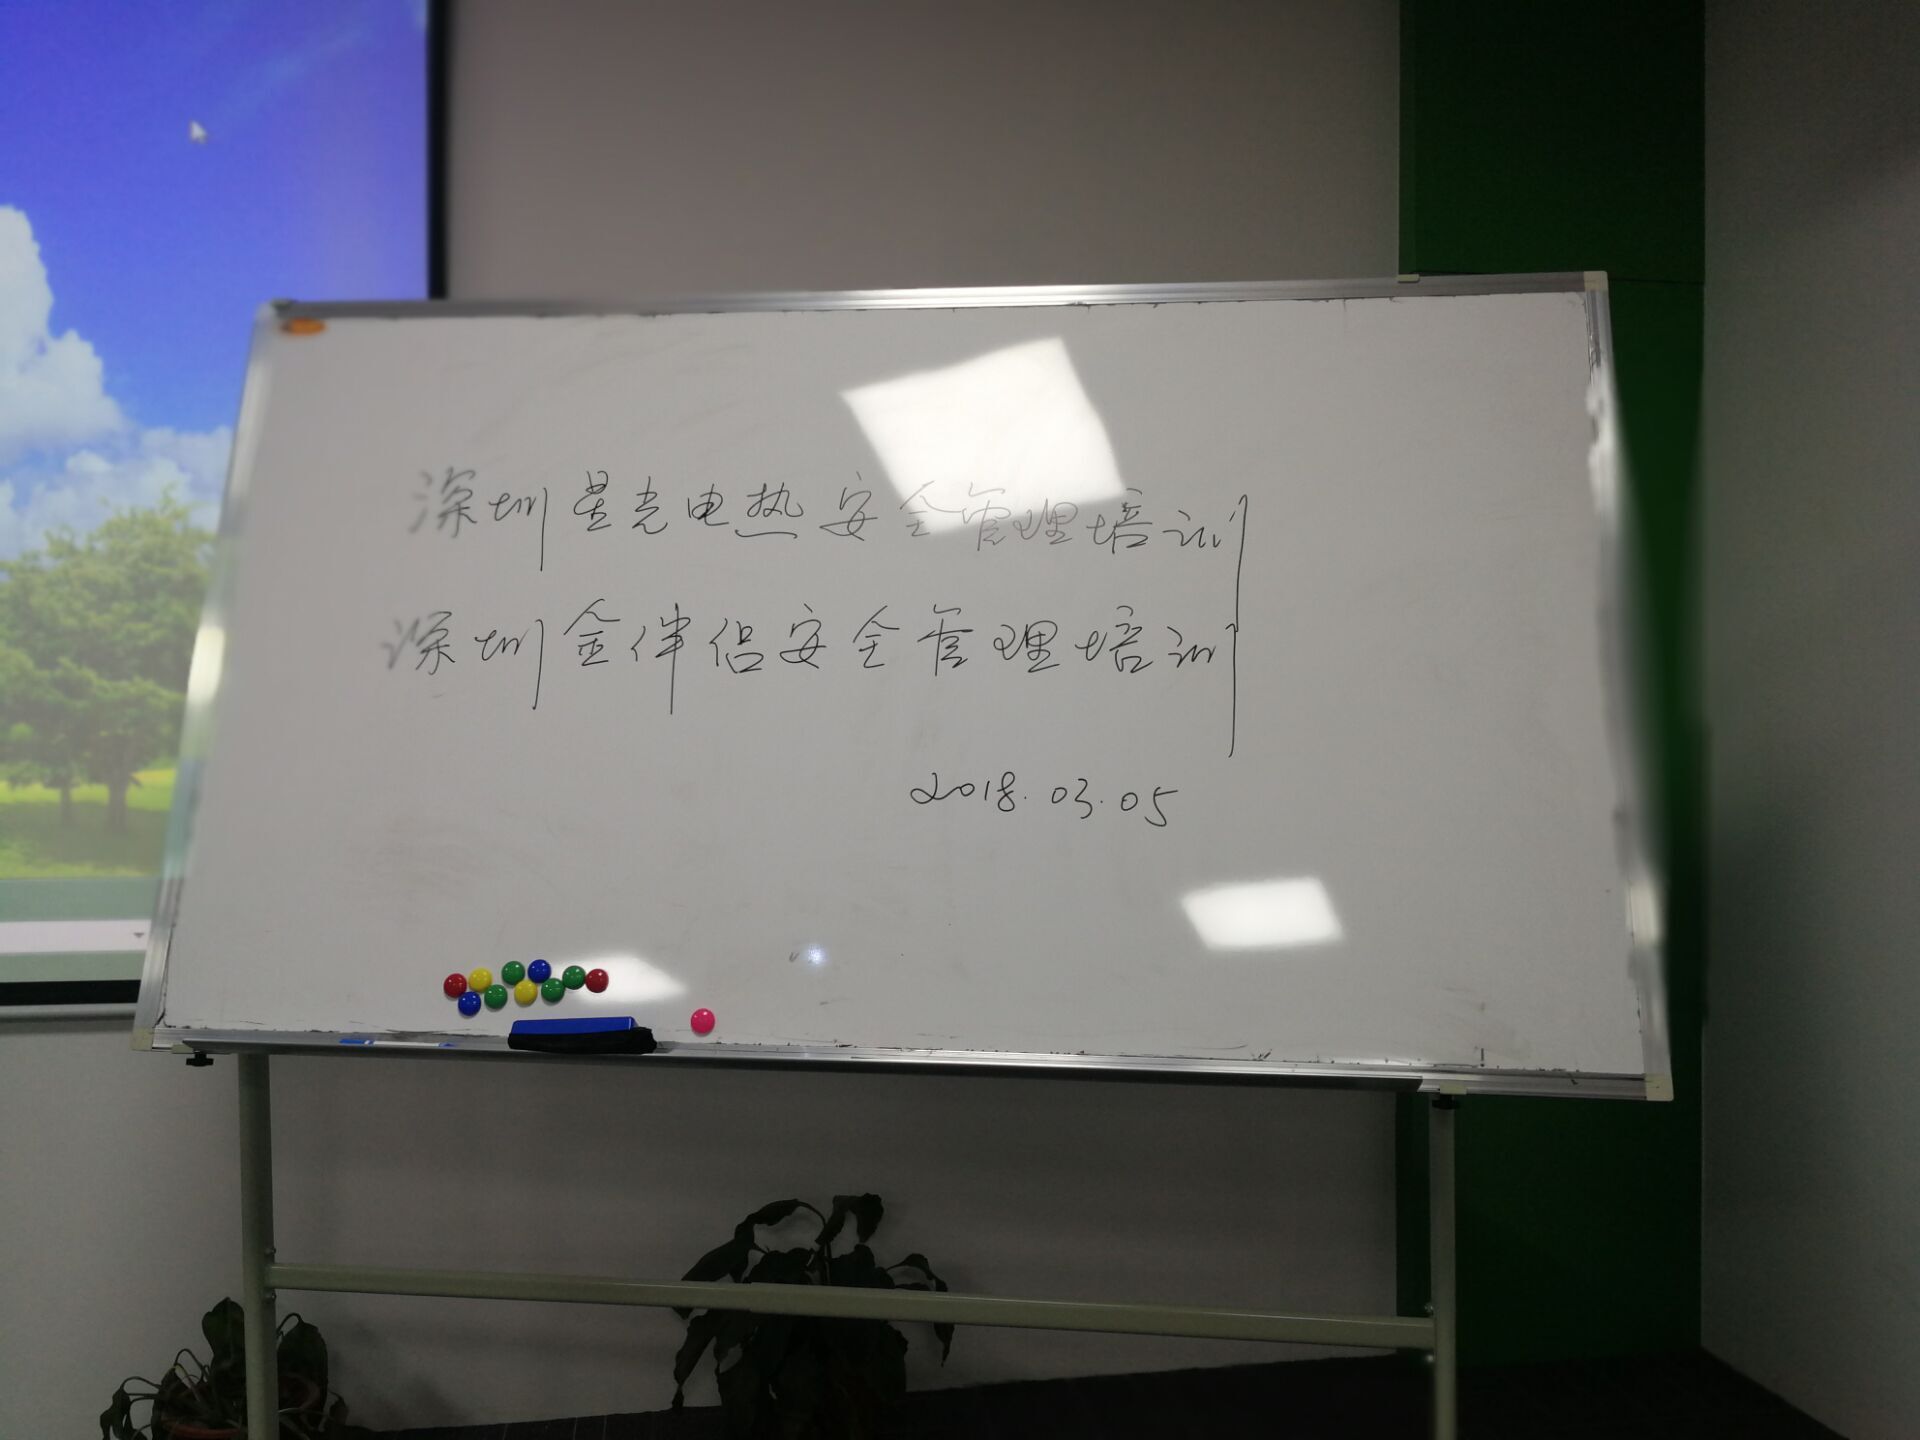 深圳星光电热安全管理培训
深圳金伴侣安全管理培训
2018.03.05